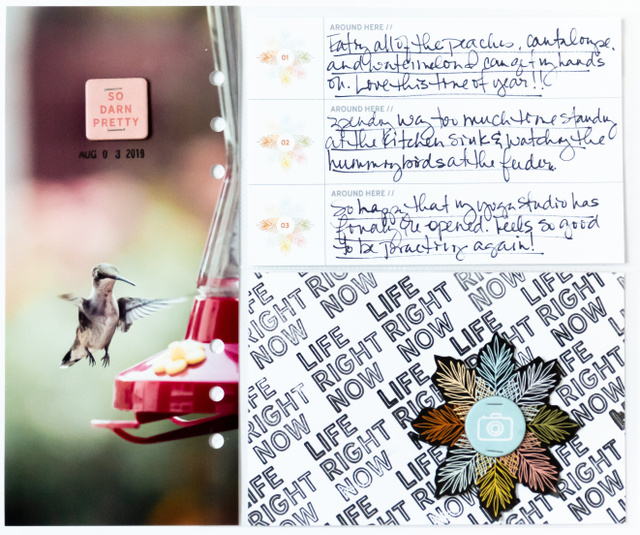 SO
DARN
PRETTY
AUG 0 3 2019
AROUND HERE //
01
Eating all of the peaches, cantaloupe,
and watermelon I can get my hands
on. Love this time of year!!
AROUND HERE //
02
Spending way too much time standing
at the kitchen sink & watching the
hummingbirds at the feeder.
AROUND HERE //
03
So happy that my yoga studio has
finally re opened. Feels so good
to be practicing again!
LIFE
RIGHT
NOW
RIGHT
NOW
LIFE
RIGHT
NOW
LIFE
RIGHT
NOW
LIFE
RIGHT
NOW
LIFE
RIGHT
NOW
LIFE
RIGHT
NOW
LIFE
RIGHT
NOW